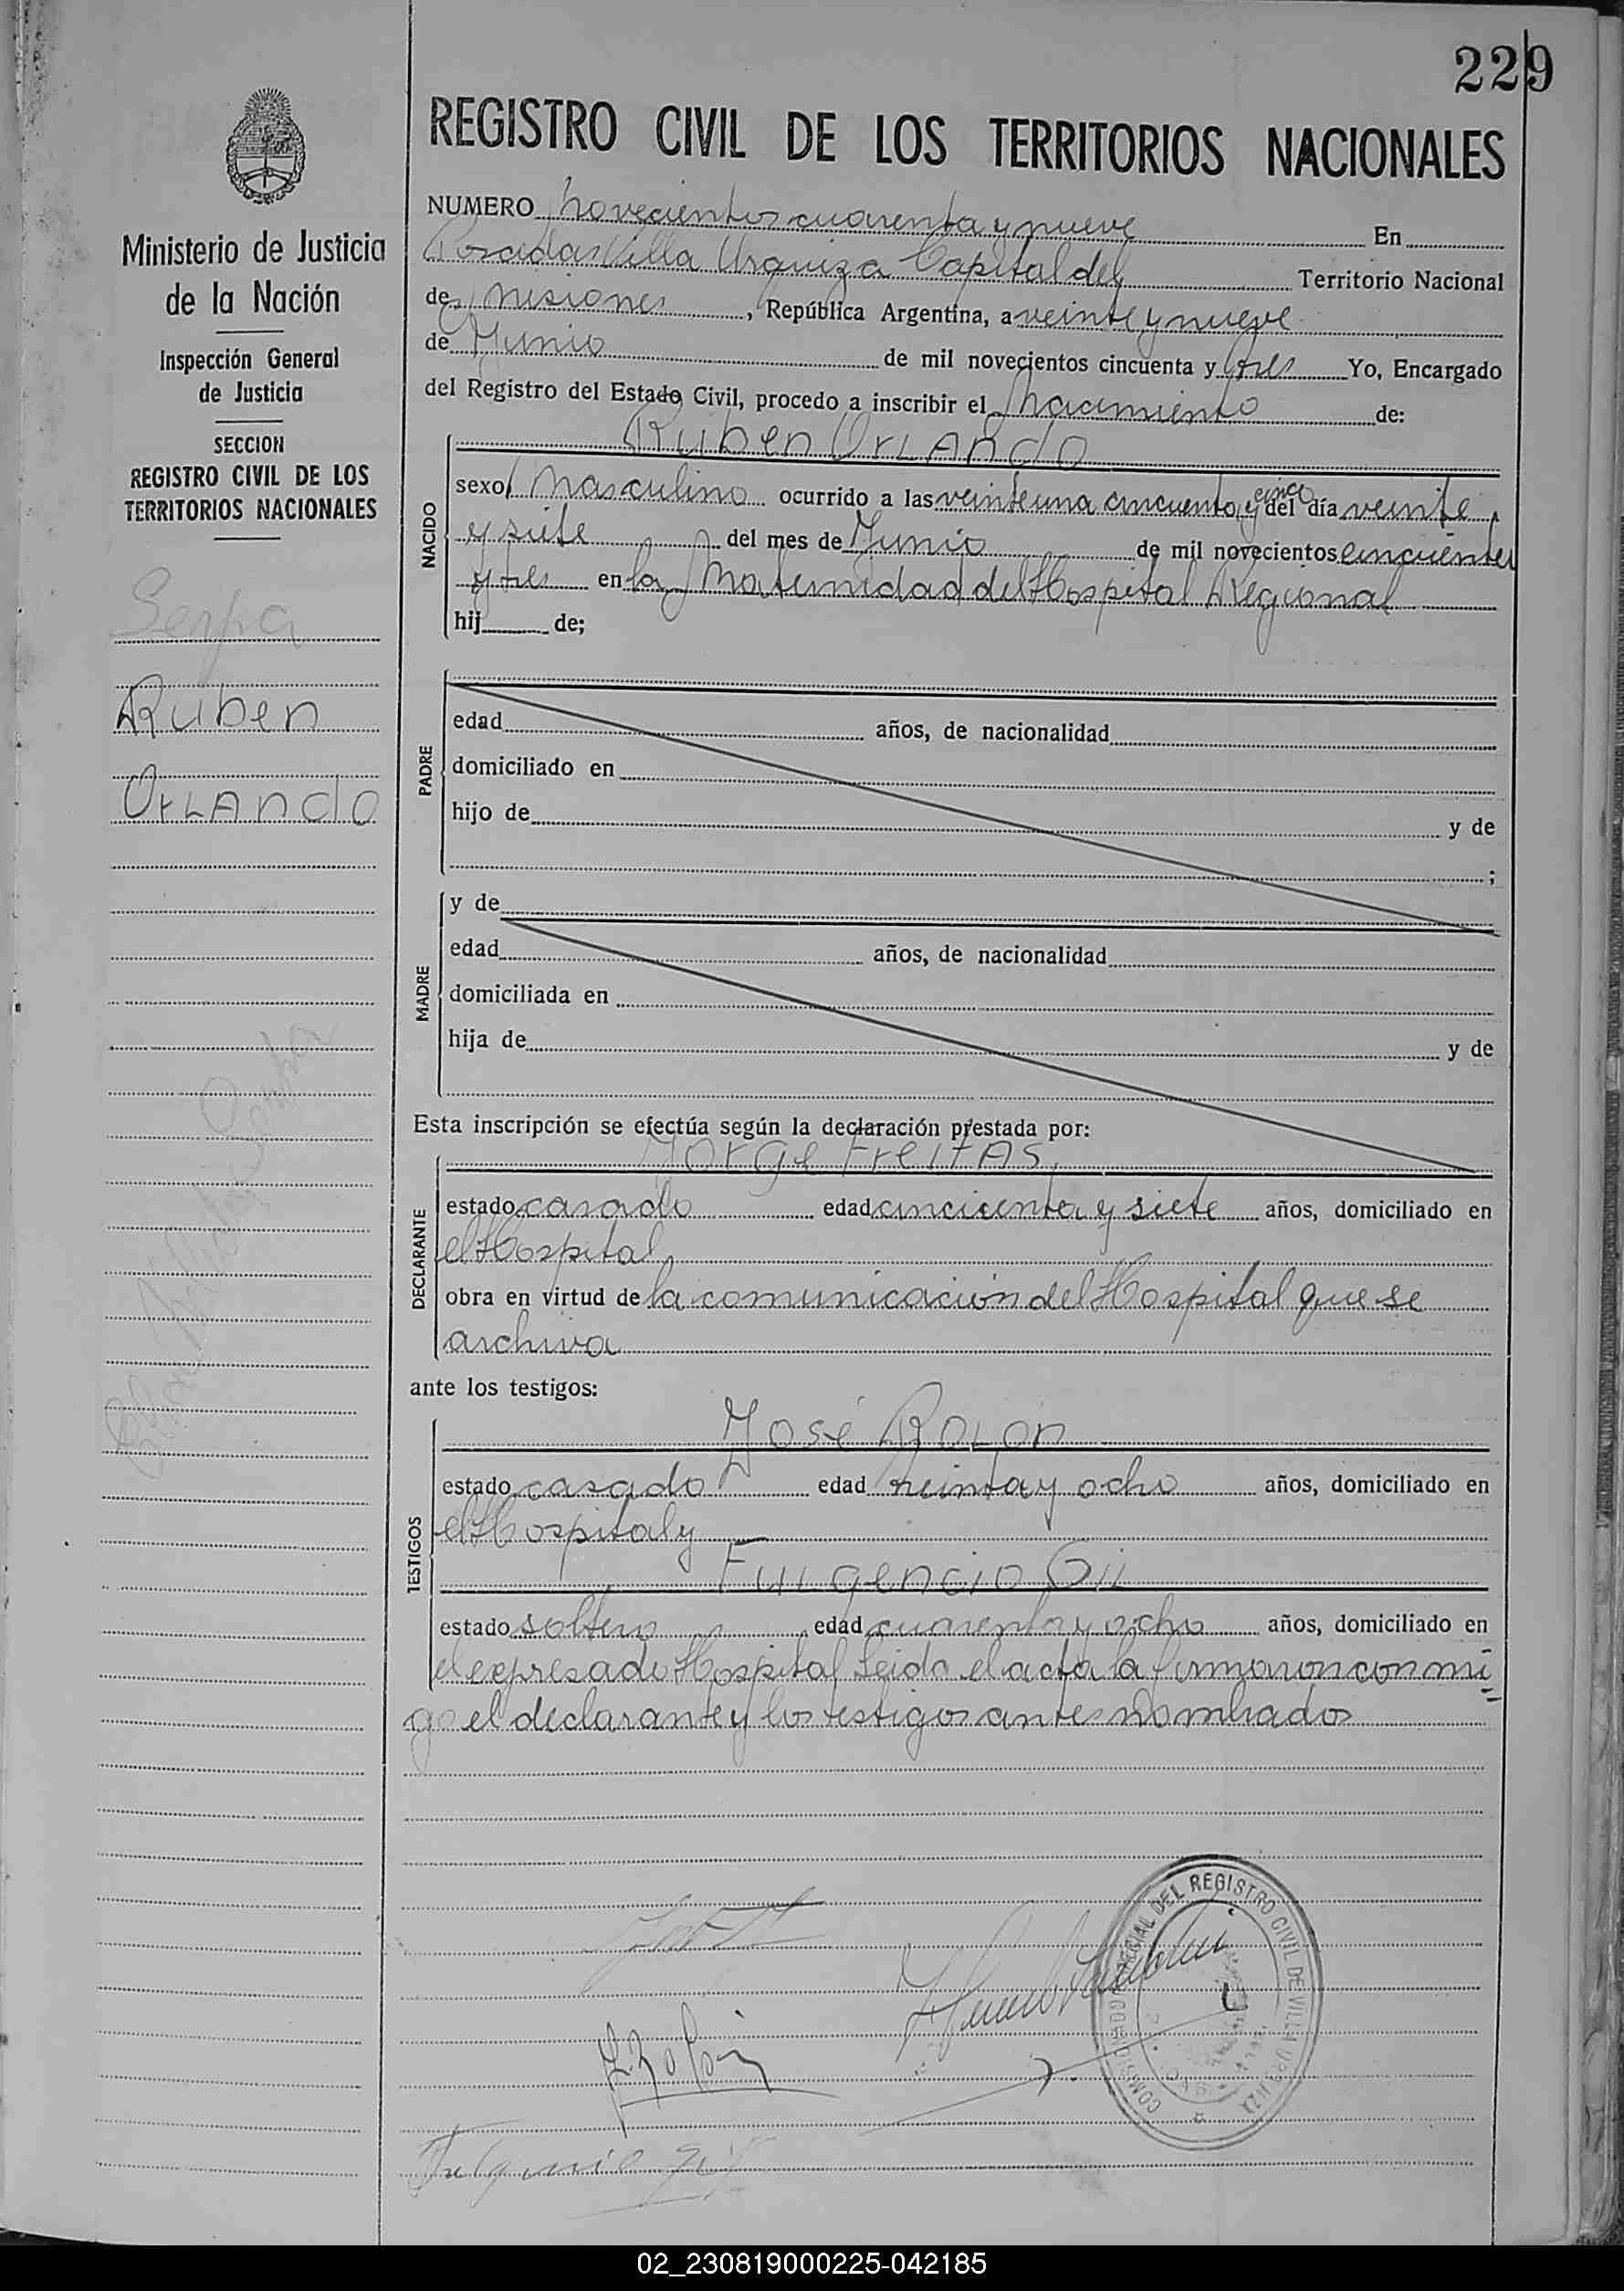 229
REGISTRO CIVIL DE LOS TERRITORIOS NACIONALES
Ministerio de Justicia
de la Nación
Inspección General
de Justicia
SECCION
REGISTRO CIVIL DE LOS
TERRITORIOS NACIONALES
Serpa
Ruben
Orlando
NUMERO novecientos cuarenta y nueve En
Posadas Villa Urquiza Capital del Territorio Nacional
de Misiones, República Argentina, a veinte y nueve
de Junio de mil novecientos cincuenta y tres Yo, Encargado
del Registro del Estado Civil, procedo a inscribir el nacimiento de:
Ruben Orlando
NACIDO
sexo masculino ocurrido a las veinte una cincuenta y cinco del día veinte
y siete del mes de Junio de mil novecientos cincuenta
y tres en la Maternidad del Hospital Regional
hij de;
PADRE
edad años, de nacionalidad
domiciliado en
hijo de y de
;
MADRE
y de
edad años, de nacionalidad
domiciliada en
hija de y de
Esta inscripción se efectúa según la declaración prestada por:
Jorge Freitas
DECLARANTE
estado casado edad cincuenta y siete años, domiciliado en
el Hospital
obra en virtud de la comunicación del Hospital que se
archiva
ante los testigos:
TESTIGOS
José Rolon
estado casado edad treinta y ocho años, domiciliado en
el Hospital y
Fulgencio Gil
estado soltero edad cuarenta y ocho años, domiciliado en
el expresado Hospital Leida el acta la firmaron conmi
go el declarante y los testigos antes nombrados
COMISARIO ESPECIAL DEL REGISTRO CIVIL DE VILLA URQUIZA
J. Rolón
Fulgencio Gil
02_230819000225-042185